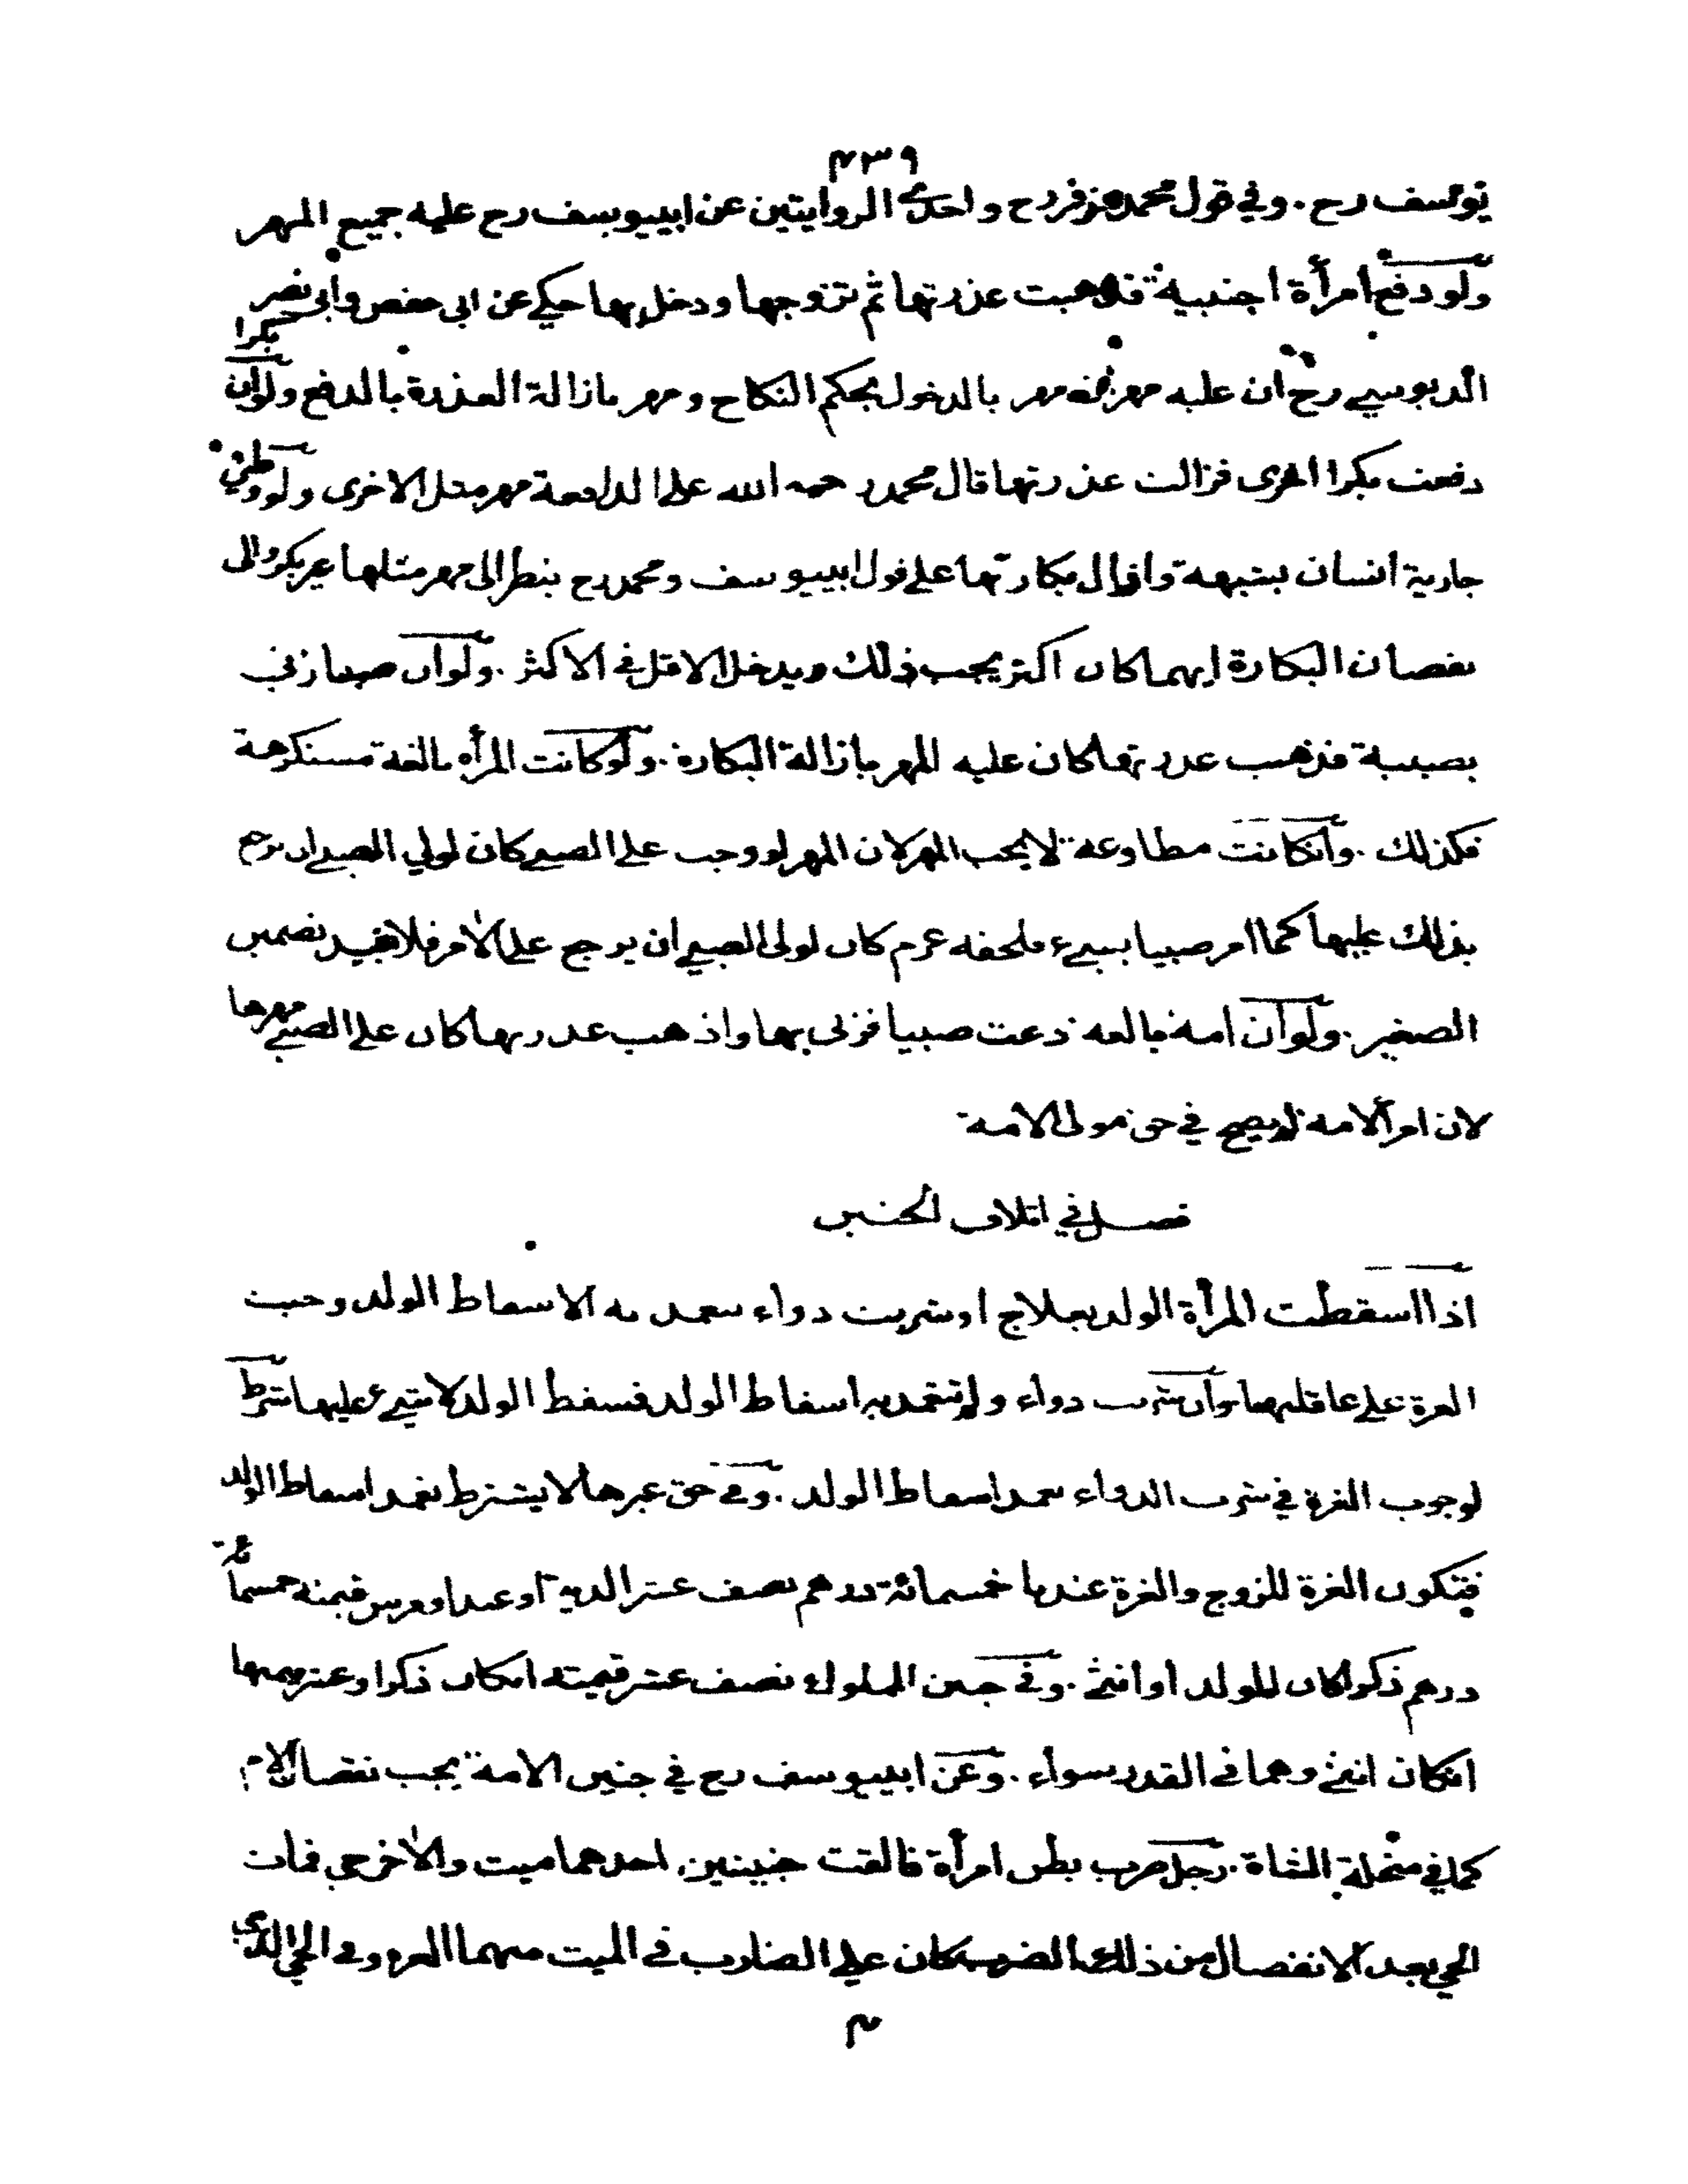 ٤٣٩
يوسف رح . وفي قول محمد وزفر رح واحدى الروايتين عن ابييوسف رح عليه جميع المهر
ولو دفع امرأة اجنبية فذهبت عذرتها ثم تزوجها ودخل بها حكي عن ابى حفص وابى نصر
الدبوسي رح ان عليه مهرين مهر بالدخول بحكم النكاح ومهر بازالة العذرة بالدفع ولو ان بكرا
دفعت بكرا اخرى فزالت عذرتها قال محمد رحمه الله على الدافعة مهر مثل الاخرى ولو وطئ
جارية انسان بشبهة وازال بكارتها على قول ابييوسف ومحمد رح ينظر الى مهر مثلها غير بكر والى
نقصان البكارة ايهما كان اكثر يجب ذلك ويدخل الاقل في الاكثر . ولو ان صبيا زنى
بصبية فذهب عذرتها كان عليه المهر بازالة البكارة . ولو كانت المرأة بالغة مستكرهة
فكذلك . وانكانت مطاوعة لا يجب المهر لان المهر لو وجب على الصبي كان لولي الصبي ان يرجع
بذلك عليها كما امر صبيا بشيء فلحقه غرم كان لولى الصبي ان يرجع على الآمر فلا يفيد تضمين
الصغير . ولو ان امة بالغة دعت صبيا فزنى بها واذهب عذرتها كان على الصبي مهرها
لان امر الامة لم يصح في حق مولى الامة
فصل في اتلاف الجنين
اذا اسقطت المرأة الولد بعلاج او شربت دواء تعمدت به الاسقاط الولد وجبت
الغرة على عاقلتها وان شربت دواء ولم تتعمد به اسقاط الولد فسقط الولد لا شيء عليها شرط
لوجوب الغرة في شرب الدواء تعمد اسقاط الولد . وفي حق غيرها لا يشترط تعمد اسقاط الولد
فتكون الغرة للزوج والغرة عندنا خمسمائة درهم نصف عشر الدية او عبد او فرس قيمته خمسمائة
درهم ذكرا كان الولد او انثى . وفي جنين المملوك نصف عشر قيمته انكان ذكرا وعشر قيمتها
انكان انثى وهما في القدر سواء . وعن ابييوسف رح في جنين الامة يجب نقصان الام
كما في الشاة . رجل ضرب بطن امرأة فالقت جنينين احدهما ميت والآخر حي فمات
الحي بعد الانفصال من ذلك الضرب كان على الضارب في الميت منهما الغرة وفى الحي الدية